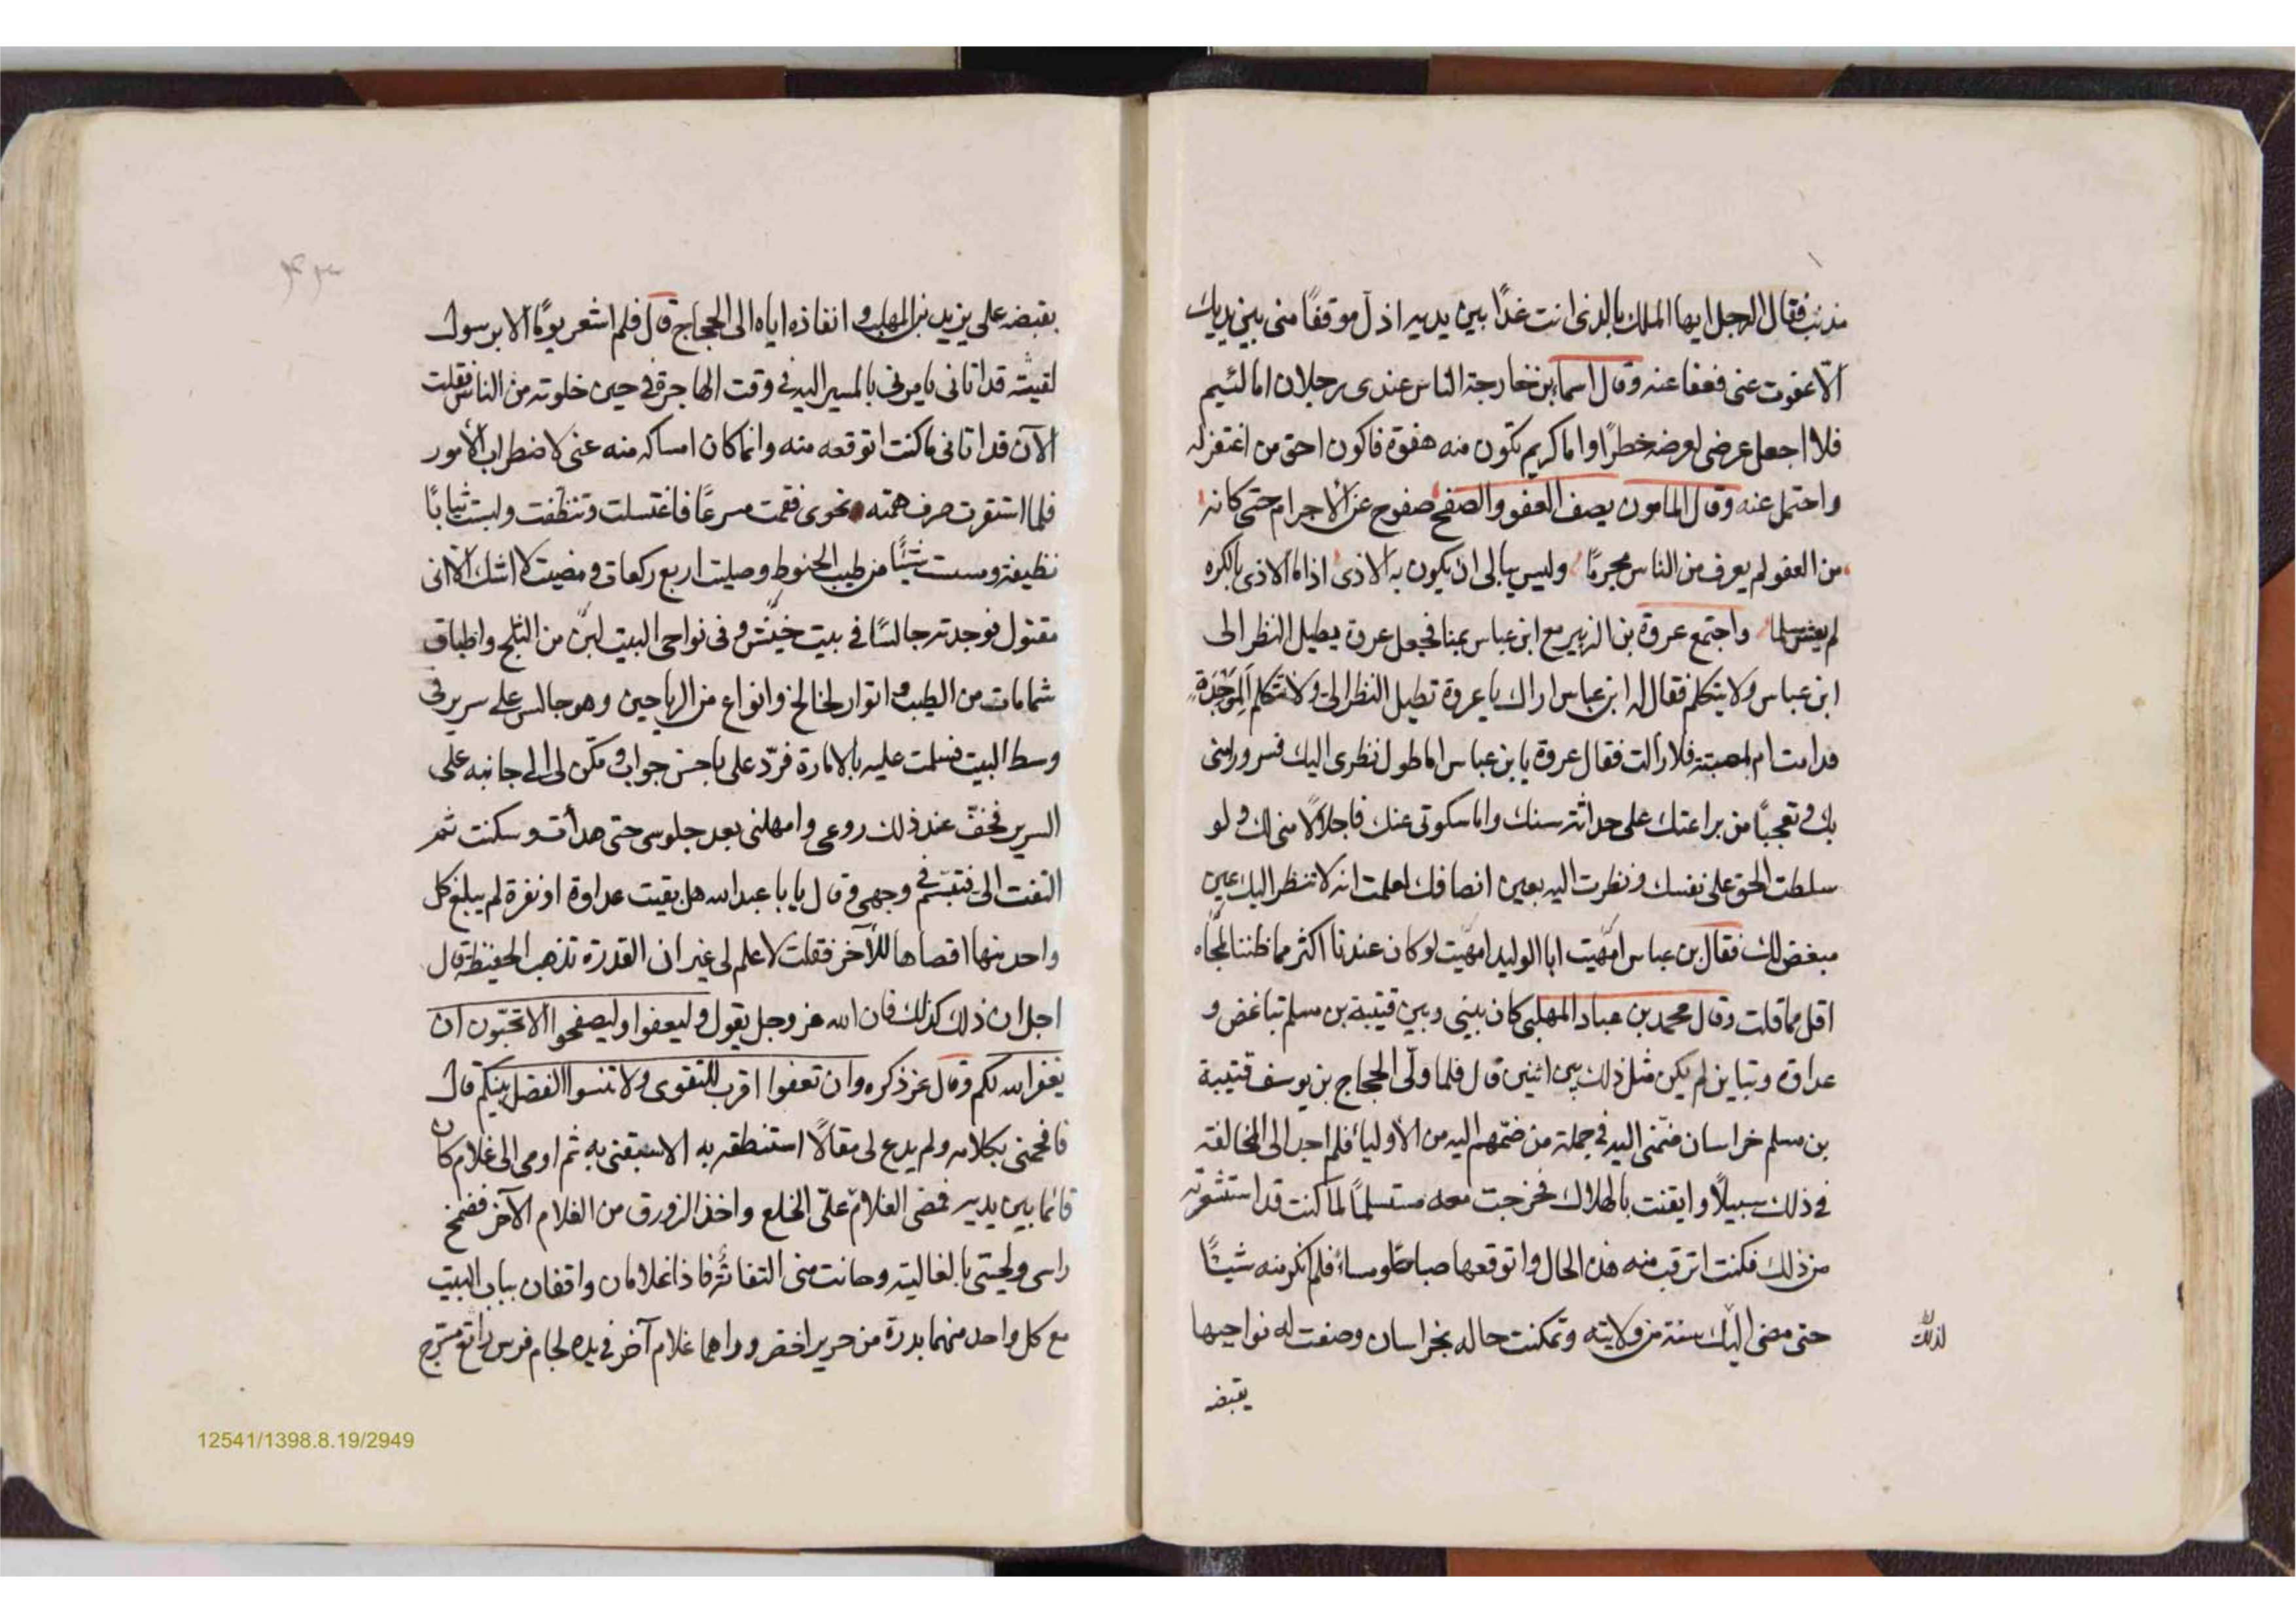 مذنب فقال الرجل ايها الملك بالذى انت غدًا بين يديه اذلّ موقفًا منى بين يديك
الّا عفوت عنى فعفا عنه وقال اسما بن خارجة الناس عندى رجلان اما لئيم
فلا اجعل عرضى لعرضه خطرًا واما كريم تكون منه هفوة فاكون احق من اغتفر له
واحتمل عنه وقال المامون يصف العفو والصفح صفوح عن الاجرام حتى كانه
من العفو لم يعرف من الناس مجرمًا وليس يبالى ان يكون به الاذى اذا ما الاذى بالكره
لم يغش مسلما واجتمع عروة بن الزبير مع ابن عباس بمنا فجعل عروة يطيل النظر الى
ابن عباس ولا يتكلم فقال له ابن عباس اراك يا عروة تطيل النظر الىّ ولا تتكلم المَوْجَدَةٍ
فدامت ام لهيبة فلا زالت فقال عروة يا بن عباس اما طول نظرى اليك فسرورا منى
بك وتعجبًا من براعتك على حداثة سنك واما سكوتى عنك فاجلالًا منى لك ولو
سلطت الحق على نفسك ونظرت اليه بعين انصافك لعلمت انه لا تنظر اليك عين
مبغض لك فقال بن عباس امهيت ابا الوليد امهيت لو كان عندنا اكثر مما ظننا لمجاه
اقل مما قلت وقال محمد بن عباد المهلبى كان بينى وبين قتيبة بن مسلم تباغض و
عداوة وتباين لم يكن مثل ذلك بين اثنين قال فلما ولّى الحجاج بن يوسف قتيبة
بن مسلم خراسان ضمّنى اليه فى جملة من ضمّهم اليه من الأولياء فلم اجد الى المخالفة
فى ذلك سبيلًا وايقنت بالهلاك فخرجت معه مستسلمًا لما كنت قد استشعرته
من ذلك فكنت اترقب منه هذه الحال واتوقعها صباحًا ومساءً فلم انكر منه شيئًا
حتى مضى اليك سنة من ولايته وتمكنت حاله بخراسان وصفت له نواحيها
لذلك
يقبضه
بقبضه على يزيد بن المهلب وانفاذه اياه الى الحجاج قال فلم اشعر يومًا الا برسول
لقيته قد اتانى يامرنى بالمسير اليه فى وقت الهاجرة فى حين خلوته من الناس فقلت
الآن قد اتانى ما كنت اتوقعه منه وانما كان امساكه منه عنى لاضطراب الأمور
فلما استقرت صرف همته نحوى فقمت مسرعًا فاغتسلت وتنظفت ولبست ثيابًا
نظيفة ومسست شيئًا من طيب الحنوط وصليت اربع ركعات ومضيت لا اشك الا انى
مقتول فوجدته جالسًا فى بيت خيش وفى نواحى البيت لبن من الثلج واطباق
شمامات من الطيب واتوار لخالخ وانواع من الرياحين وهو جالس على سرير فى
وسط البيت فسلمت عليه بالامارة فردّ على باحسن جواب ومكن لى الى جانبه على
السرير فخفّ عند ذلك روعى وامهلنى بعد جلوسى حتى هدأت وسكنت ثم
التفت الى فتبسّم فى وجهى وقال يا با عبد الله هل بقيت عداوة او نفرة لم يبلغ كل
واحد منها اقصاها للآخر فقلت لا علم لى غير ان القدرة تذهب الحفيظة قال
اجل ان ذلك كذلك فان الله عز وجل يقول وليعفوا وليصفحوا الا تحبّون ان
يغفر الله لكم وقال عز ذكره وان تعفوا اقرب للتقوى ولا تنسوا الفضل بينكم قال
فافحمنى بكلامه ولم يدع لى مقالًا استنطقه به الا سبقنى به ثم اومى الى غلام كان
قائما بين يديه فمضى الغلام علىّ الخلع واخذ الزورق من الغلام الآخر فضمخ
راسى ولحيتى بالغالية وحانت منى التفاتة فاذا غلامان واقفان بباب البيت
مع كل واحد منهما بدرة من حرير اخضر وراهما غلام آخر فى يده لجام فرس رائع مسرج
12541/1398.8.19/2949